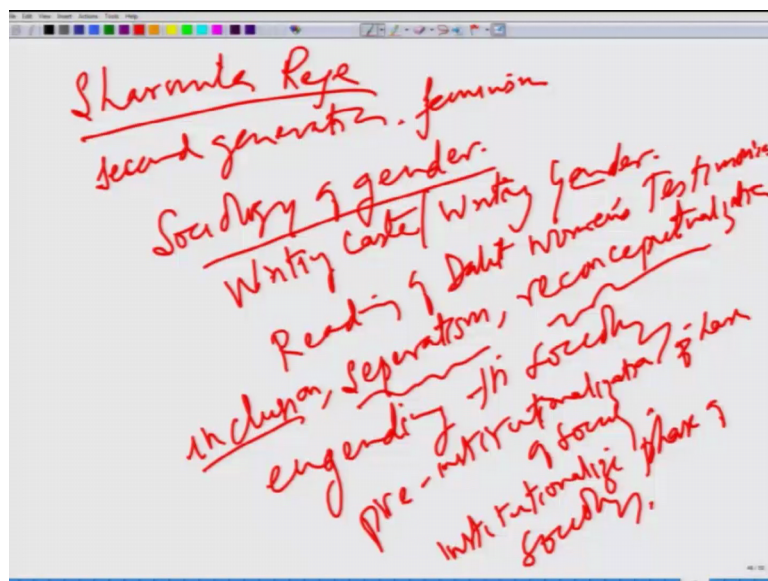 File Edit View Insert Actions Tools Help
Sharmila Rege
second generation. feminism
Sociology of gender.
Writing Caste/Writing Gender.
Reading of Dalit Women's Testimonies
inclusion, separatism, reconceptualization
engending in Sociology
pre-institutionalization phase
of Sociology
institutionalize phase of
Sociology.